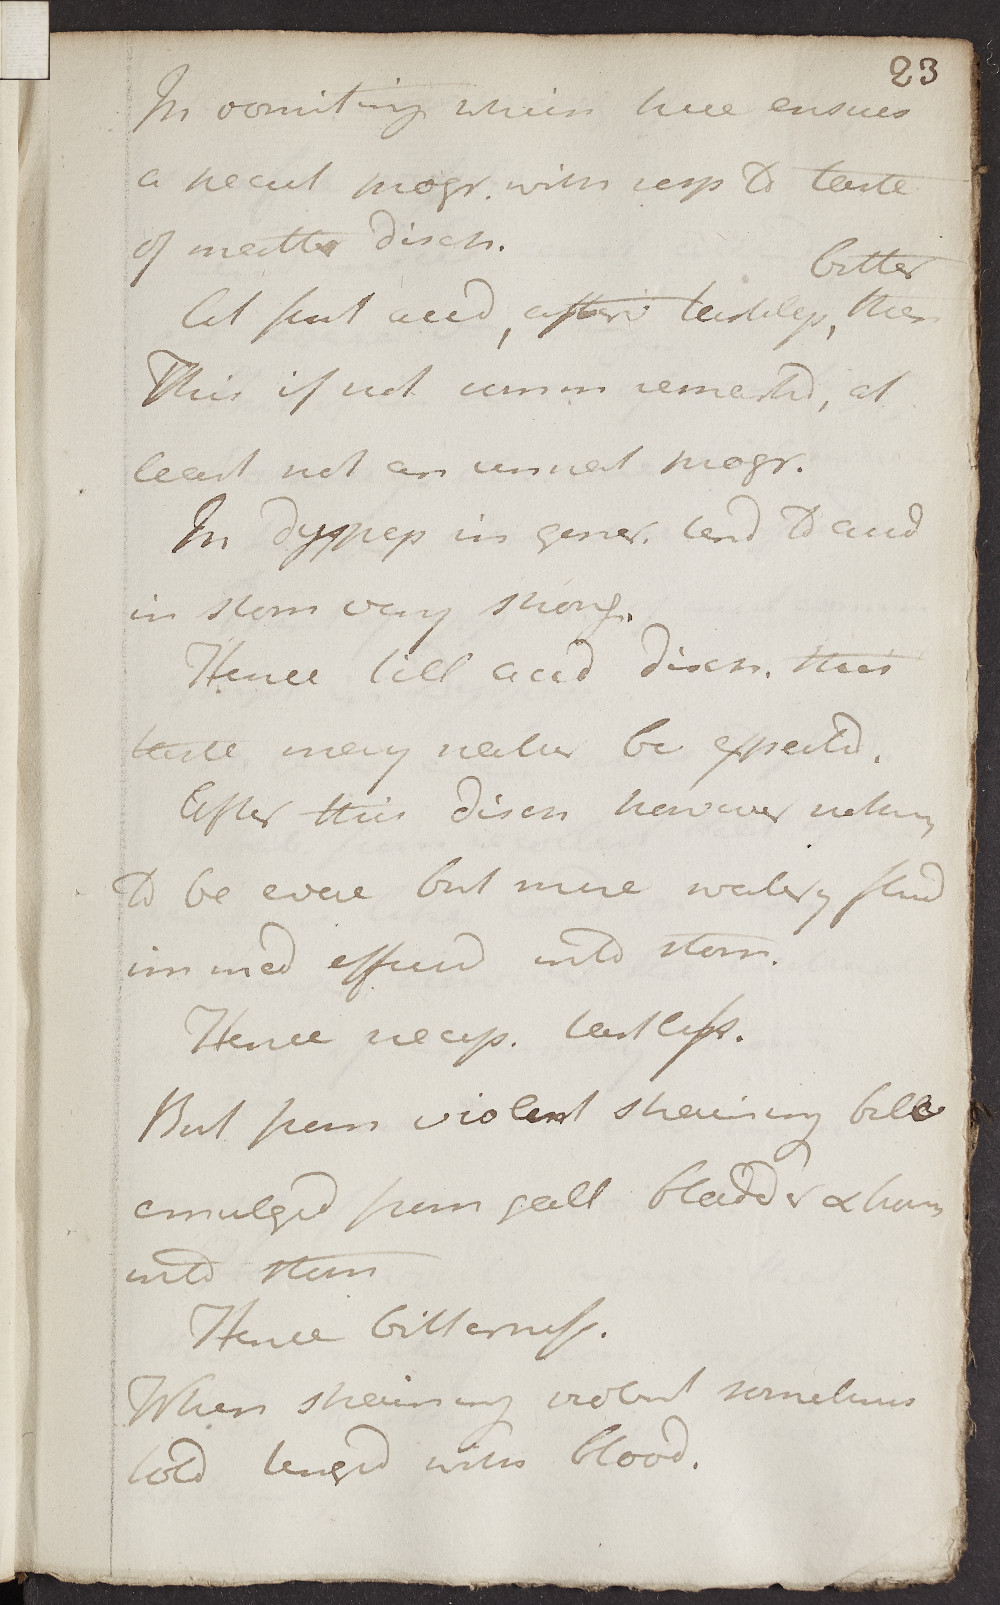 23
In vomiting which here ensues
a necul progr. with resp to taste
of matter disch.
bitter
At first acid, afterw tasteless, then
This if not comm remarkd, at
least not an unnat progr.
In dyspeps in gener. tend to acid
in stom very strong.
Hence till acid disch. this
taste may natur be expectd.
After this disch however nothing
to be evac but mere watery fluid
immed effusd into stom.
Hence necess. tastless.
But from violent straining bile
emulgd from gall bladder & hence
into stom
Hence bitterness.
When straining violent sometimes
told tingd with blood.